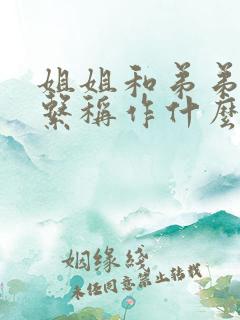 姐姐和弟弟
繫稱作什麼
姻缘綫
未经同意禁止转载